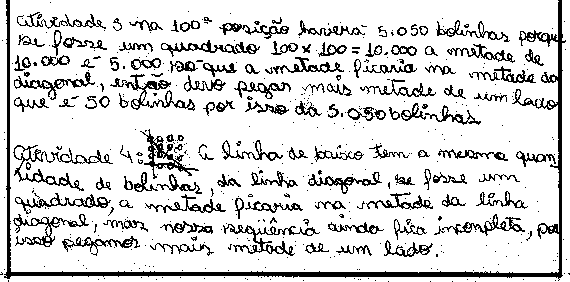 Atividade 3 na 100ª posição haverá 5.050 bolinhas porque
se fosse um quadrado 100 x 100 = 10.000 a metade de
10.000 é 5.000 só que a metade ficaria na metade da
diagonal, então devo pegar mais metade de um lado
que é 50 bolinhas por isso da 5.050 bolinhas.
Atividade 4: A linha de baixo tem a mesma quan-
tidade de bolinhas, da linha diagonal, se fosse um
quadrado, a metade ficaria na metade da linha
diagonal, mas nossa seqüência ainda fica incompleta, por
isso pegamos mais metade de um lado.